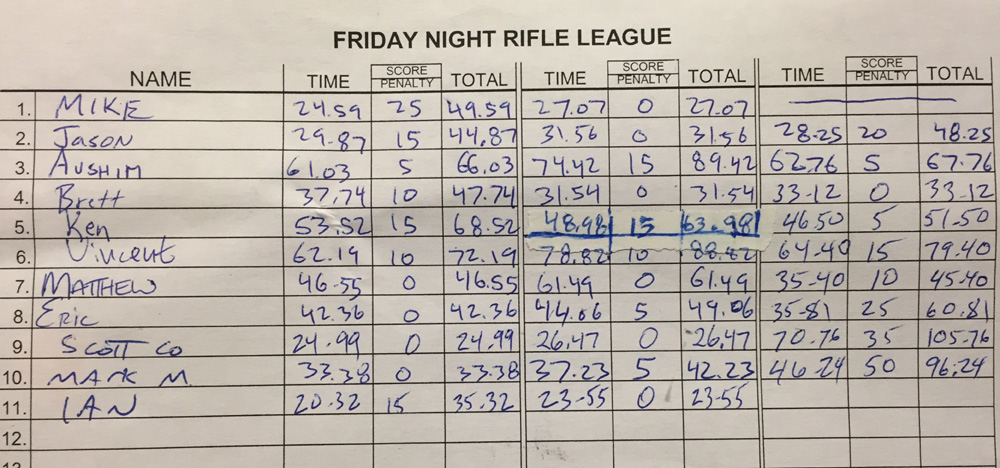 FRIDAY NIGHT RIFLE LEAGUE
NAME TIME SCORE PENALTY TOTAL TIME SCORE PENALTY TOTAL TIME SCORE PENALTY TOTAL
1. MIKE 24.59 25 49.59 27.07 0 27.07
2. JASON 29.87 15 44.87 31.56 0 31.56 28.25 20 48.25
3. AUSHIM 61.03 5 66.03 74.42 15 89.42 62.76 5 67.76
4. Brett 37.74 10 47.74 31.54 0 31.54 33-12 0 33-12
5. Ken 53.52 15 68.52 48.98 15 63.98 46.50 5 51.50
6. Vincent 62.19 10 72.19 78.82 10 88.82 64.40 15 79.40
7. MATTHEW 46-55 0 46.55 61.49 0 61.49 35-40 10 45.40
8. ERIC 42.36 0 42.36 44.06 5 49.06 35-81 25 60.81
9. SCOTT CO 24.99 0 24.99 26.47 0 26.47 70.76 35 105.76
10. MARK M. 33.38 0 33.38 37.23 5 42.23 46-24 50 96.24
11. IAN 20.32 15 35.32 23-55 0 23-55
12.